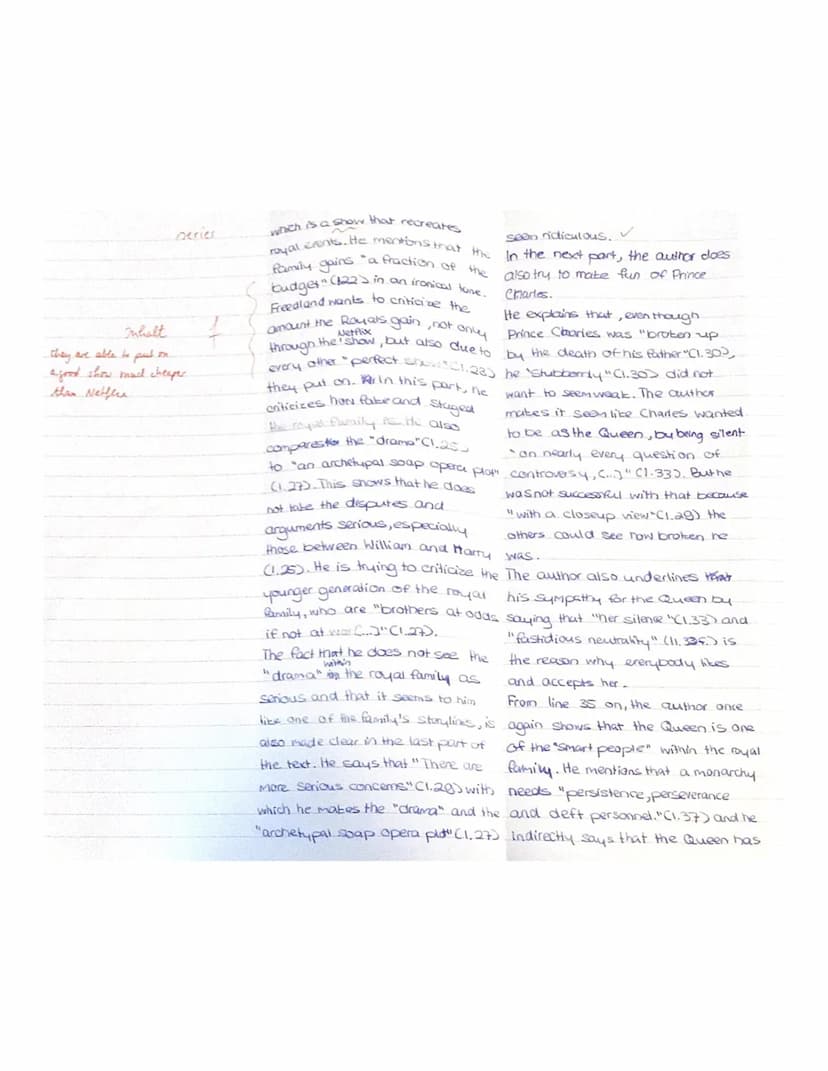 series
Inhalt f
they are able to put on
a good show much cheaper
than Netflix
which is a show that recreates
royal events. He mentions that the
family gains "a fraction of the
budget" (l.22) in an ironical tone.
Freedland wants to criticize the
amount the Royals gain, not only
through the Netflix show, but also due to
every other "perfect show" (l.23)
they put on. In this part, he
criticizes how fake and staged
the royal family is. He also
compares the "drama" (l.25)
to "an archetypal soap opera plot"
(l.27). This shows that he does
not take the disputes and
arguments serious, especially
those between William and Harry
(l.25). He is trying to criticize the
younger generation of the royal
family, who are "brothers at odds
if not at war [...]" (l.27).
The fact that he does not see the
"drama" within the royal family as
serious and that it seems to him
like one of the family's storylines, is
also made clear in the last part of
the text. He says that "There are
more serious concerns" (l.29) with
which he makes the "drama" and the
"archetypal soap opera plot" (l.27)
seen ridiculous. ✓
In the next part, the author does
also try to make fun of Prince
Charles.
He explains that, even though
Prince Charles was "broken up
by the death of his father" (l.30),
he "stubbornly" (l.30) did not
want to seem weak. The author
makes it seen like Charles wanted
to be as the Queen, by being silent
"on nearly every question of
controversy, (...)" (l.33). But he
was not successful with that because
"with a closeup view" (l.29) the
others could see how broken he
was.
The author also underlines
his sympathy for the Queen by
saying that "her silence" (l.33) and
"fastidious neutrality" (ll. f.) is
the reason why everybody likes
and accepts her.
From line 35 on, the author once
again shows that the Queen is one
of the "smart people" within the royal
family. He mentions that a monarchy
needs "persistence, perseverance
and deft personnel." (l.37) and he
indirectly says that the Queen has